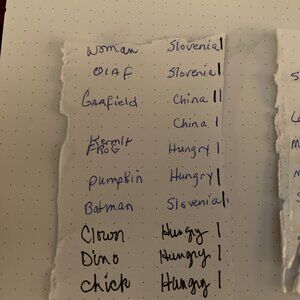 Woman Slovenia |
OlAF Slovenia |
GARfield China ||
China |
Kermit FROG Hungry |
pumpkin Hungry |
Batman Slovenia |
Clown Hungry |
Dino Hungry |
Chick Hungry |